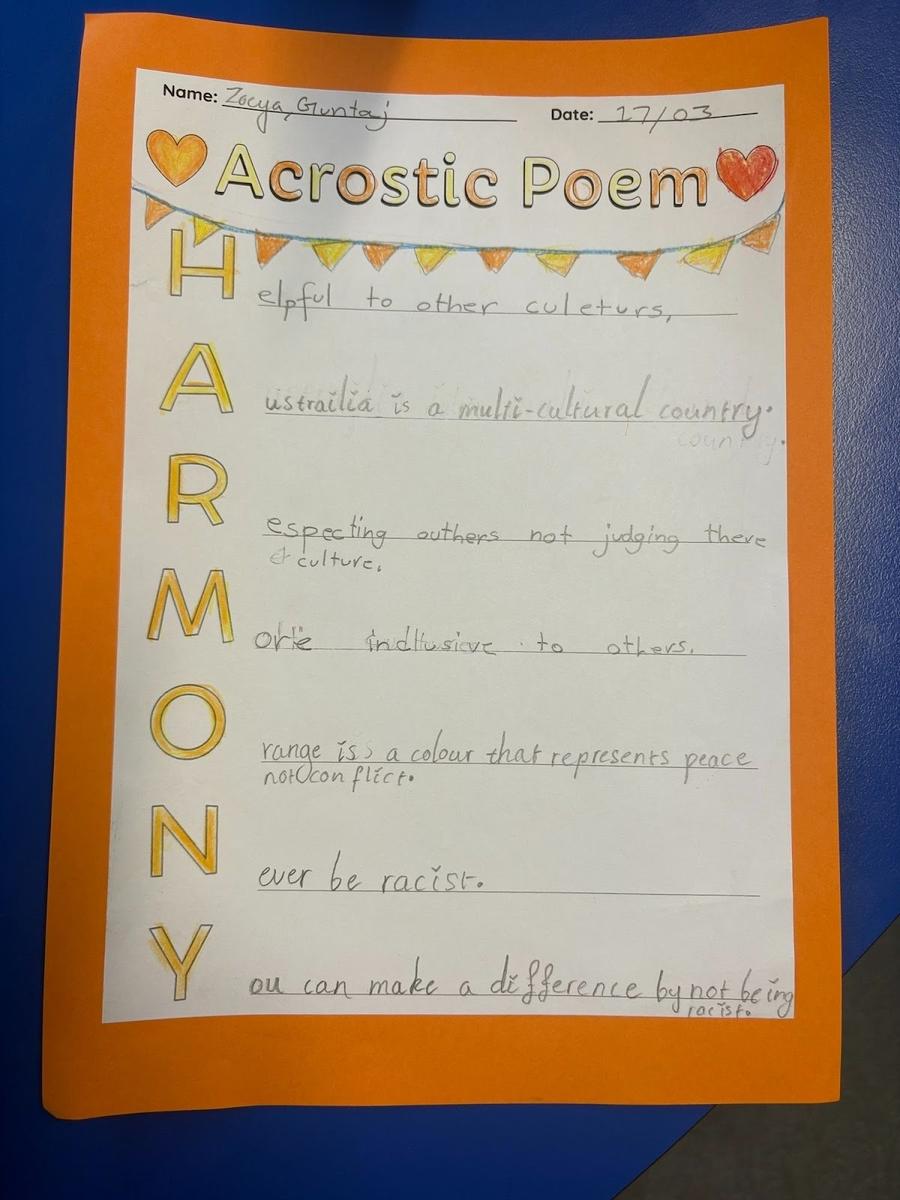 Name: Zoeya, Guntaj Date: 17/03
Acrostic Poem
Helpful to other culeturs,
Austrailia is a multi-cultural country.
Respecting outhers not judging there
culture.
More indlusive to others.
Orange is a colour that represents peace
not conflict.
Never be racist.
You can make a difference by not being
racist.